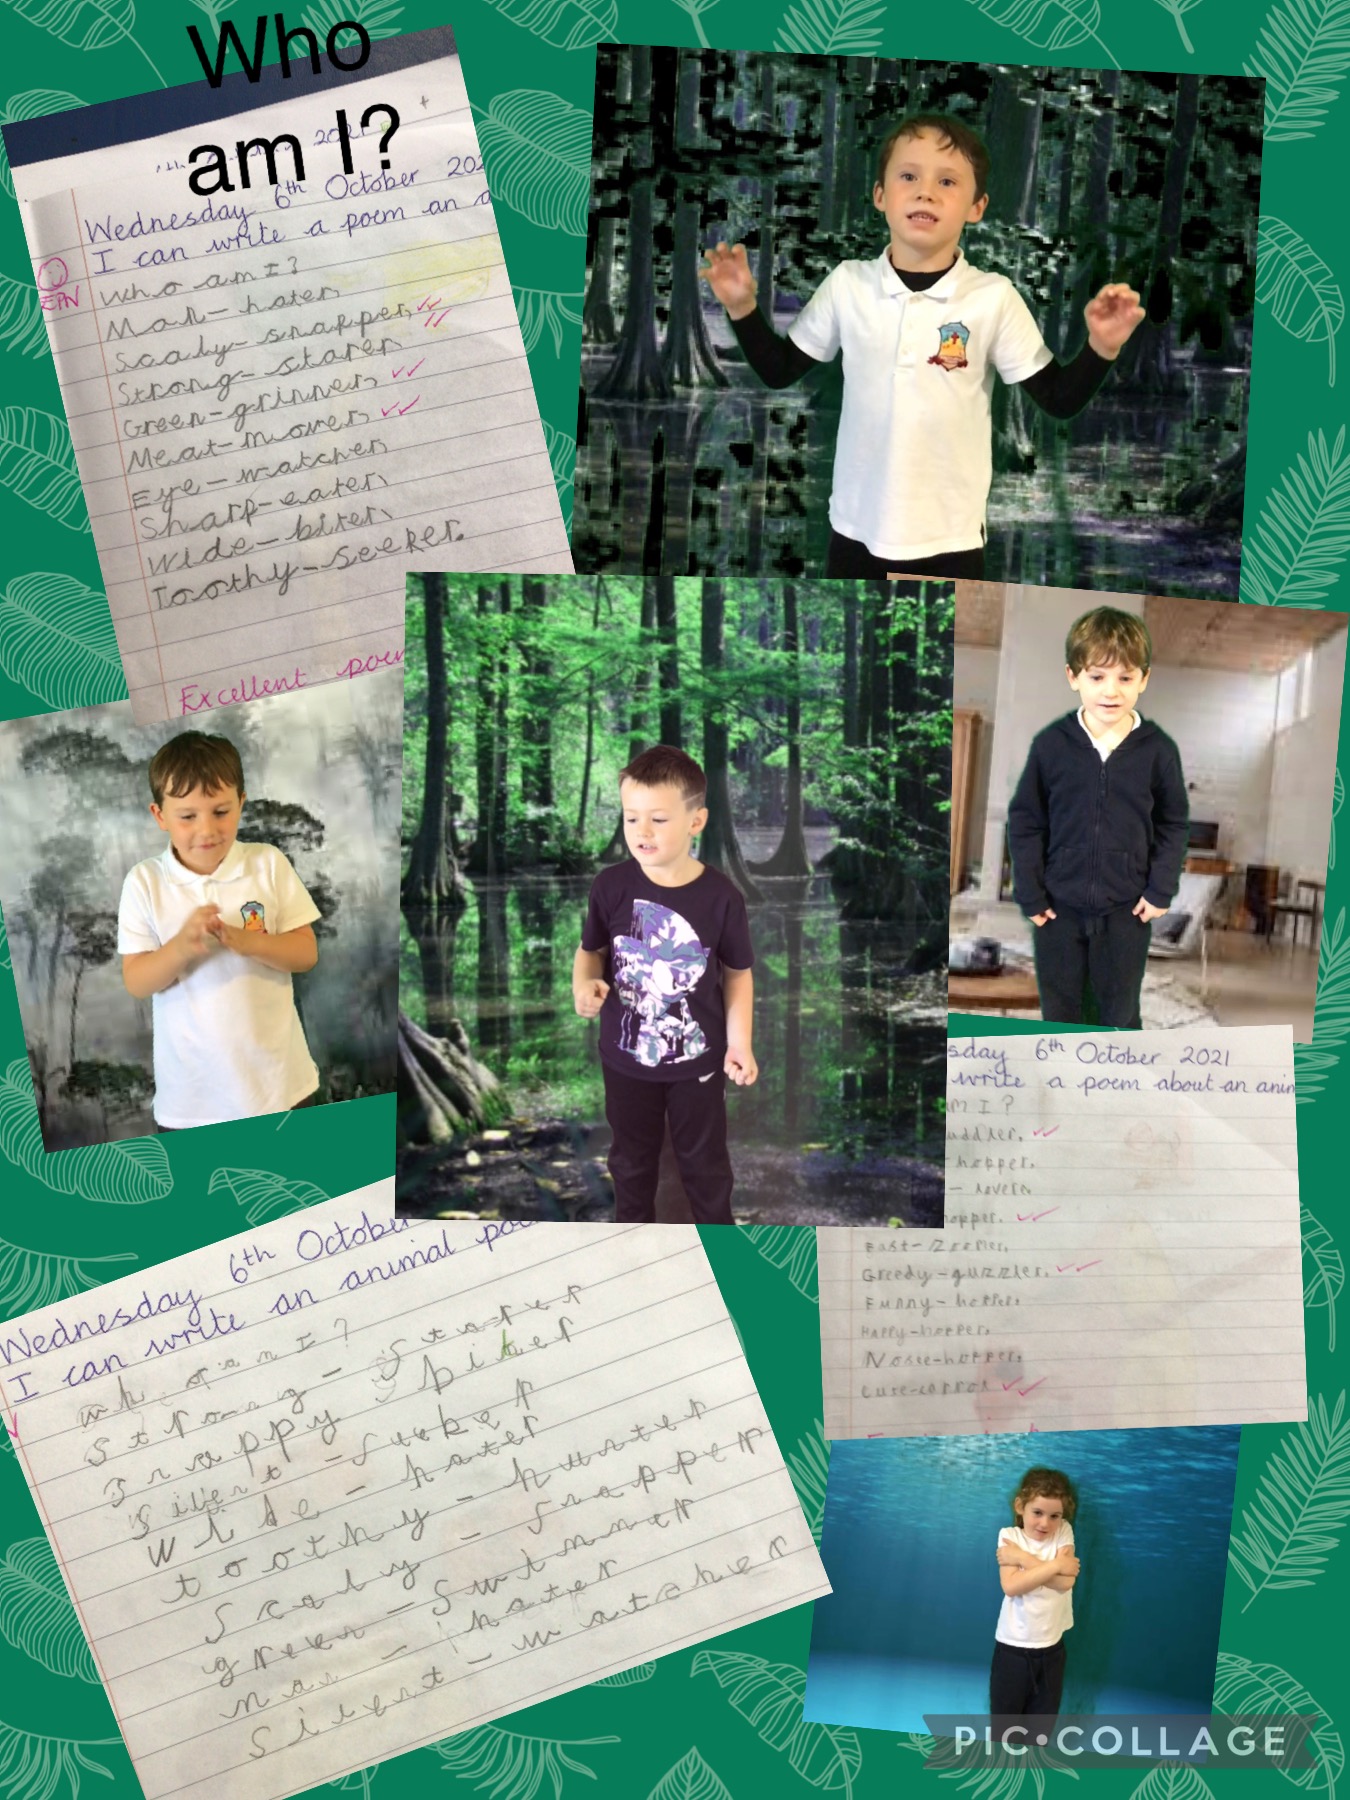 Who
am I?
2021
Wednesday 6th October 202
I can write a poem an a
Who am I?
Man-hater,
Scaly-snapper,
Strong-starer,
Green-grinner,
Meat-mover,
Eye-watcher,
Sharp-eater,
Wide-biter,
Toothy-seeker.
Excellent poem
EPN
sday 6th October 2021
write a poem about an anim
am I?
uddler,
hopper,
- lover,
opper,
Fast-zoomer,
Greedy-guzzler,
Funny-hopper,
Happy-hopper,
Nose-hopper,
Cute-carrot
Wednesday 6th October
I can write an animal poe
who am I?
Strong - Starer
Snappy biter
Silent - Sucker
Wide - hater
toothy - hunter
Scaly - Snapper
green - Swimmer
man - hater
Silent - watcher
PIC•COLLAGE